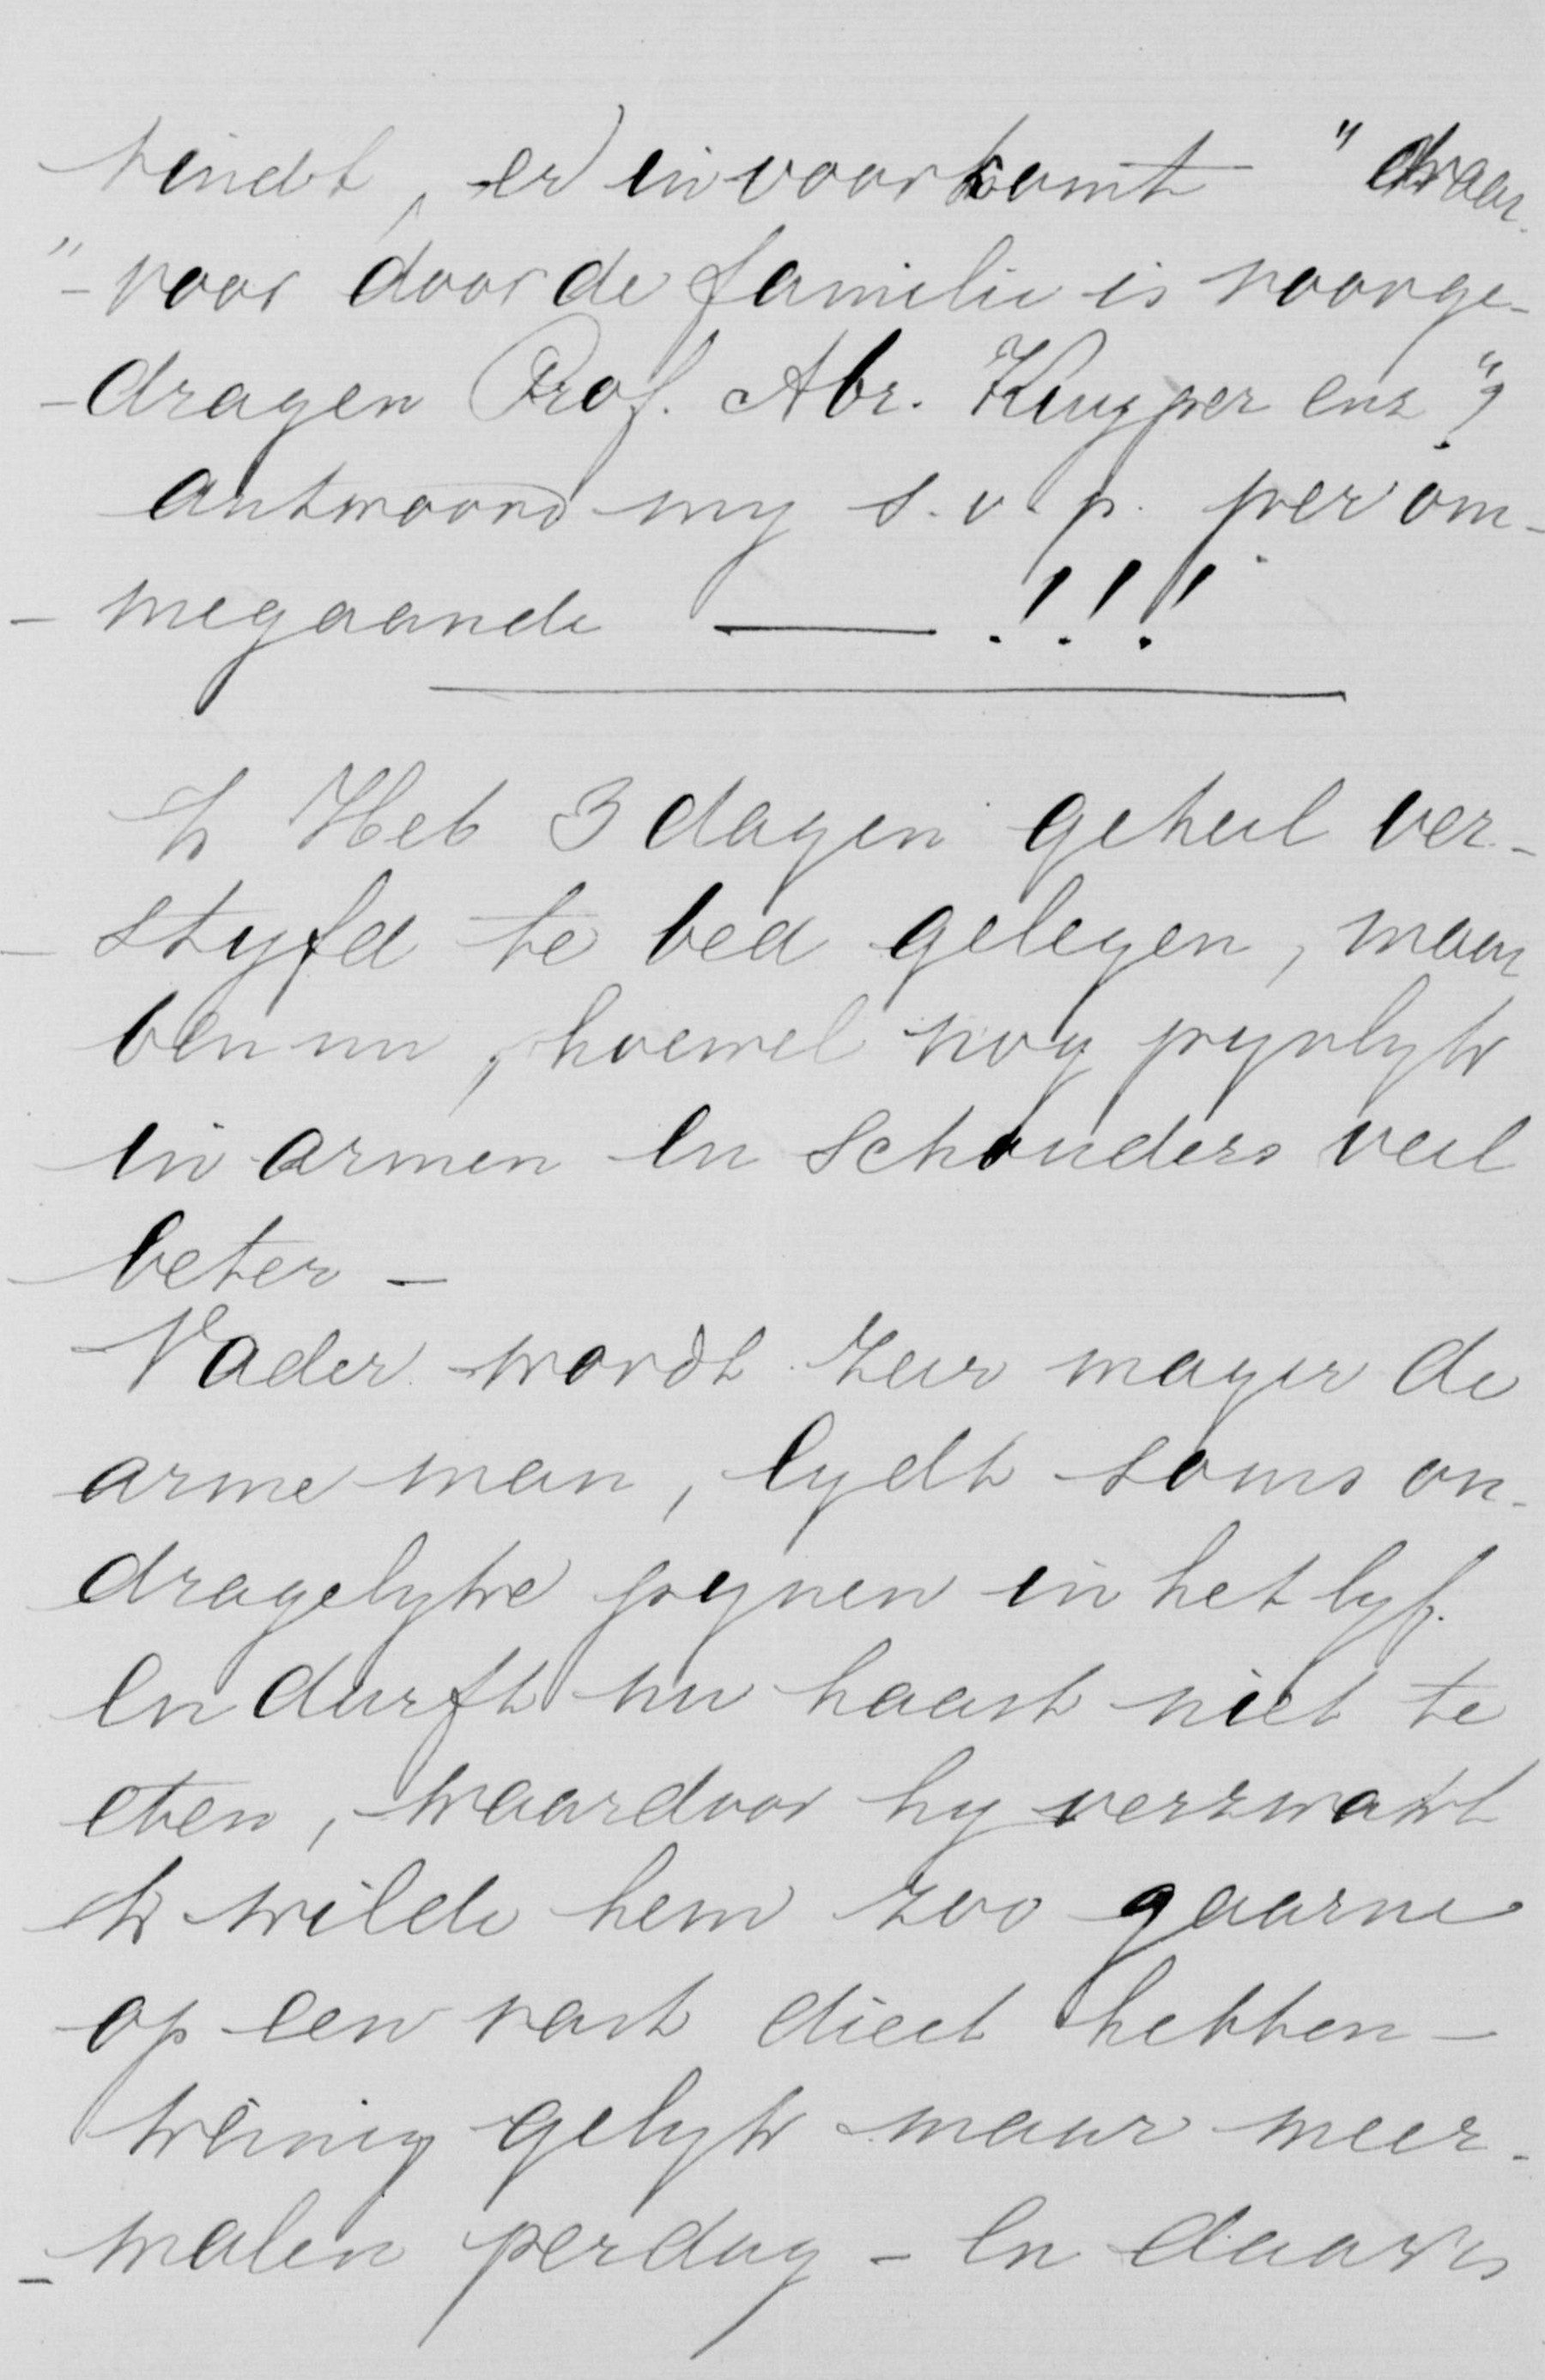 vindt, er in voorkomt "daar
"-voor door de familie is voorge-
-dragen Prof. Abr. Kuyper enz"?
antwoord my s.v.p. per om-
-megaande — !!!
Ik Heb 3 dagen geheel ver-
-styfd te bed gelegen, maar
ben nu, hoewel nog pynlyk
in armen en schouders veel
beter -
Vader wordt zeer mager de
arme man, lydt soms on-
dragelyke pynen in het lyf.
en durft nu haast niet te
eten, waardoor hy verzwakt
Ik wilde hem zoo gaarne
op een vast dieet hebben -
weinig gelyk maar meer-
-malen per dag - en daar is